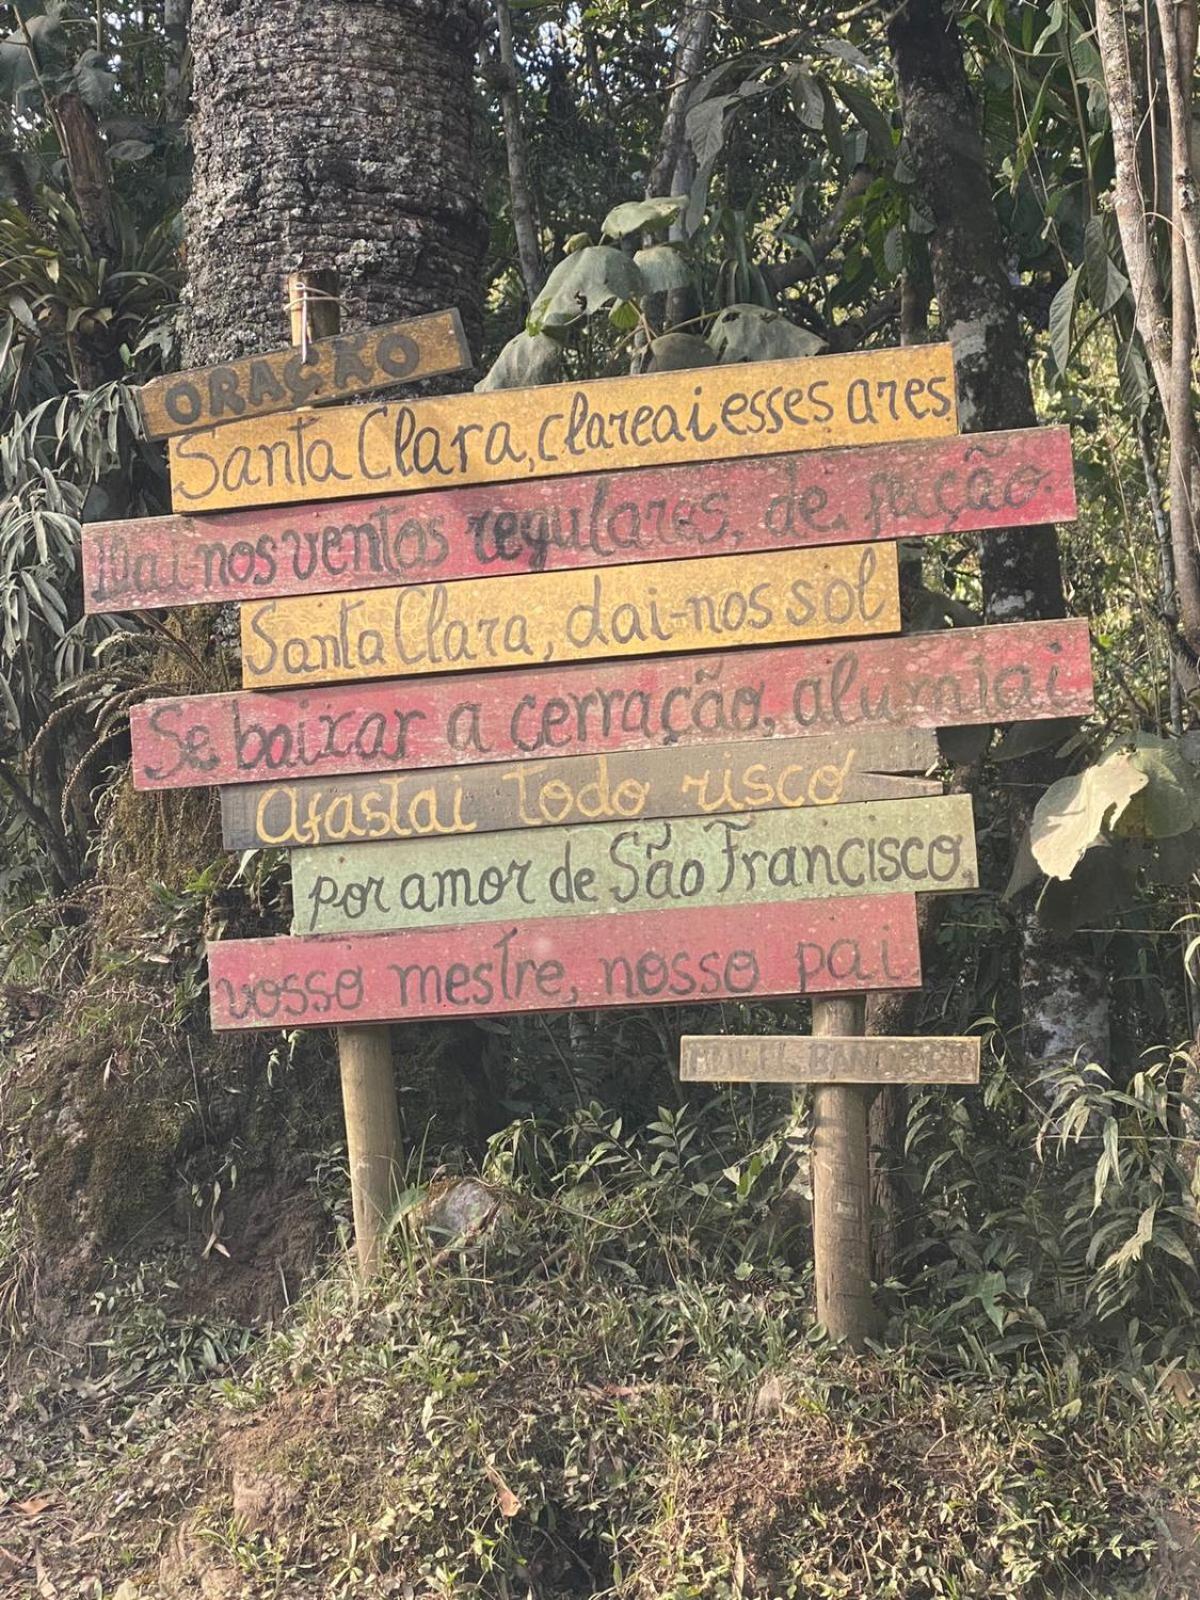 ORAÇÃO
Santa Clara, clareai esses ares.
Dai-nos ventos regulares, de feição.
Santa Clara, dai-nos sol
Se baixar a cerração, alumiai
Afastai todo risco
por amor de São Francisco,
vosso mestre, nosso pai.